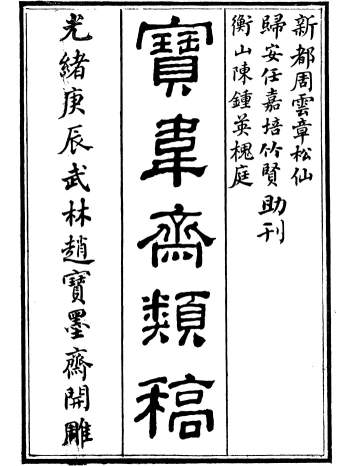 新都周雲章松仙
歸安任嘉培竹賢助刊
衡山陳鍾英槐庭
寶韋齋類稿
光緒庚辰武林趙寶墨齋開雕